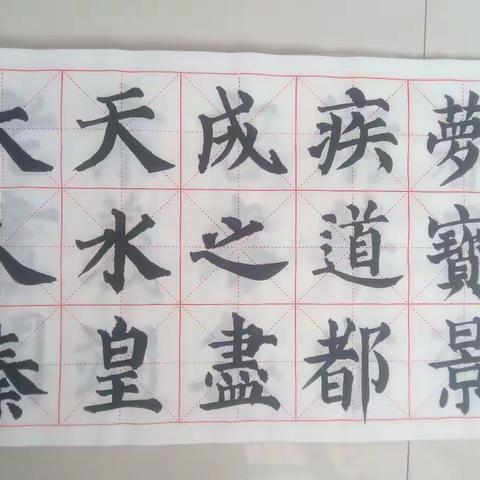 天成疾夢
水之道寶
秦皇盡都景